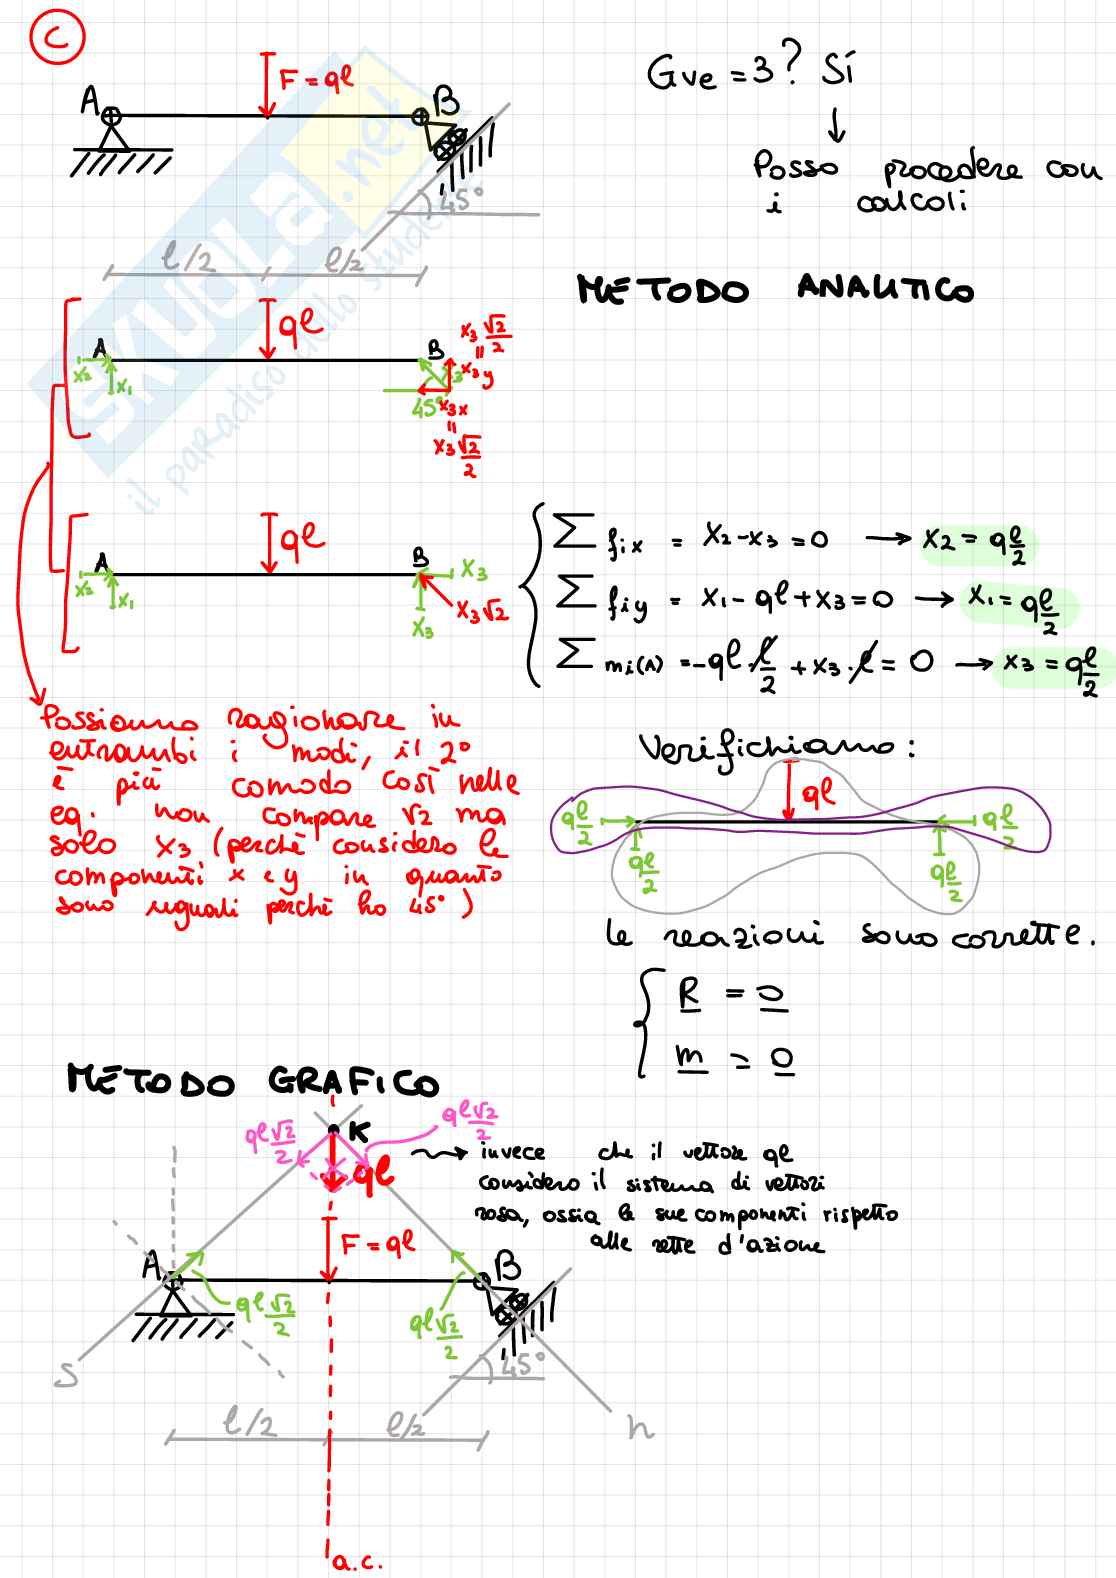 C
F = ql
A
B
45°
l/2
l/2
Gve = 3? Sí
↓
Posso procedere con
i calcoli
METODO ANALITICO
ql
A
B
x2
x1
x3 √2/2
=
x3y
x3
45°
x3x
=
x3 √2/2
ql
A
B
x2
x1
x3
x3√2
x3
∑ fix = x2 - x3 = 0 → x2 = ql/2
∑ fiy = x1 - ql + x3 = 0 → x1 = ql/2
∑ mi(A) = -ql · l/2 + x3 · l = 0 → x3 = ql/2
Possiamo ragionare in
entrambi i modi, il 2°
è più comodo così nelle
eq. non compare √2 ma
solo x3 (perchè considero le
componenti x e y in quanto
sono uguali perchè ho 45°)
Verifichiamo:
ql
ql/2
ql/2
ql/2
ql/2
le reazioni sono corrette.
R = 0
m = 0
METODO GRAFICO
K
ql√2/2
ql√2/2
ql
invece che il vettore ql
considero il sistema di vettori
rosa, ossia le sue componenti rispetto
alle rette d'azione
F = ql
A
B
ql√2/2
ql√2/2
45°
s
n
l/2
l/2
a.c.
SKUOLA.net
il paradiso dello stude